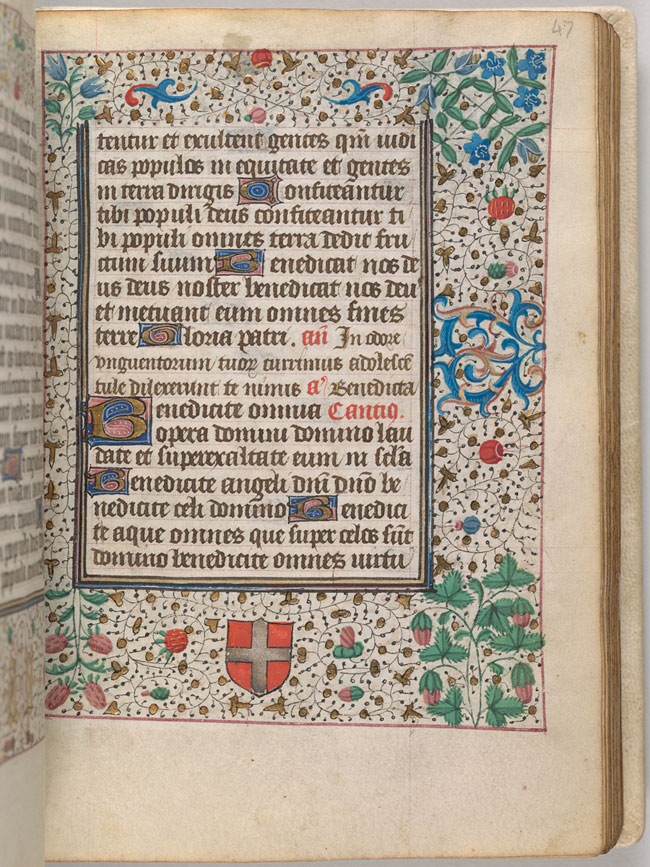 47
tentur et exultent gentes qm̄ iudi
cas populos in equitate et gentes
in terra dirigis Confiteantur
tibi populi deus confiteantur ti
bi populi omnes terra dedit fru
ctum suum Benedicat nos de
us deus noster benedicat nos deu
et metuant eum omnes fines
terre Gloria patri. an̄ In odore
vnguentorum tuoꝝ currimus adolescē
tule dilexerunt te nimis a' Benedicta
Benedicite omnia Cantiq.
opera domini domino lau
date et superexaltate eum in sc̄la
Benedicite angeli dn̄i dn̄o be
nedicite celi domino Benedici
te aque omnes que super celos sūt
domino benedicite omnes uirtu